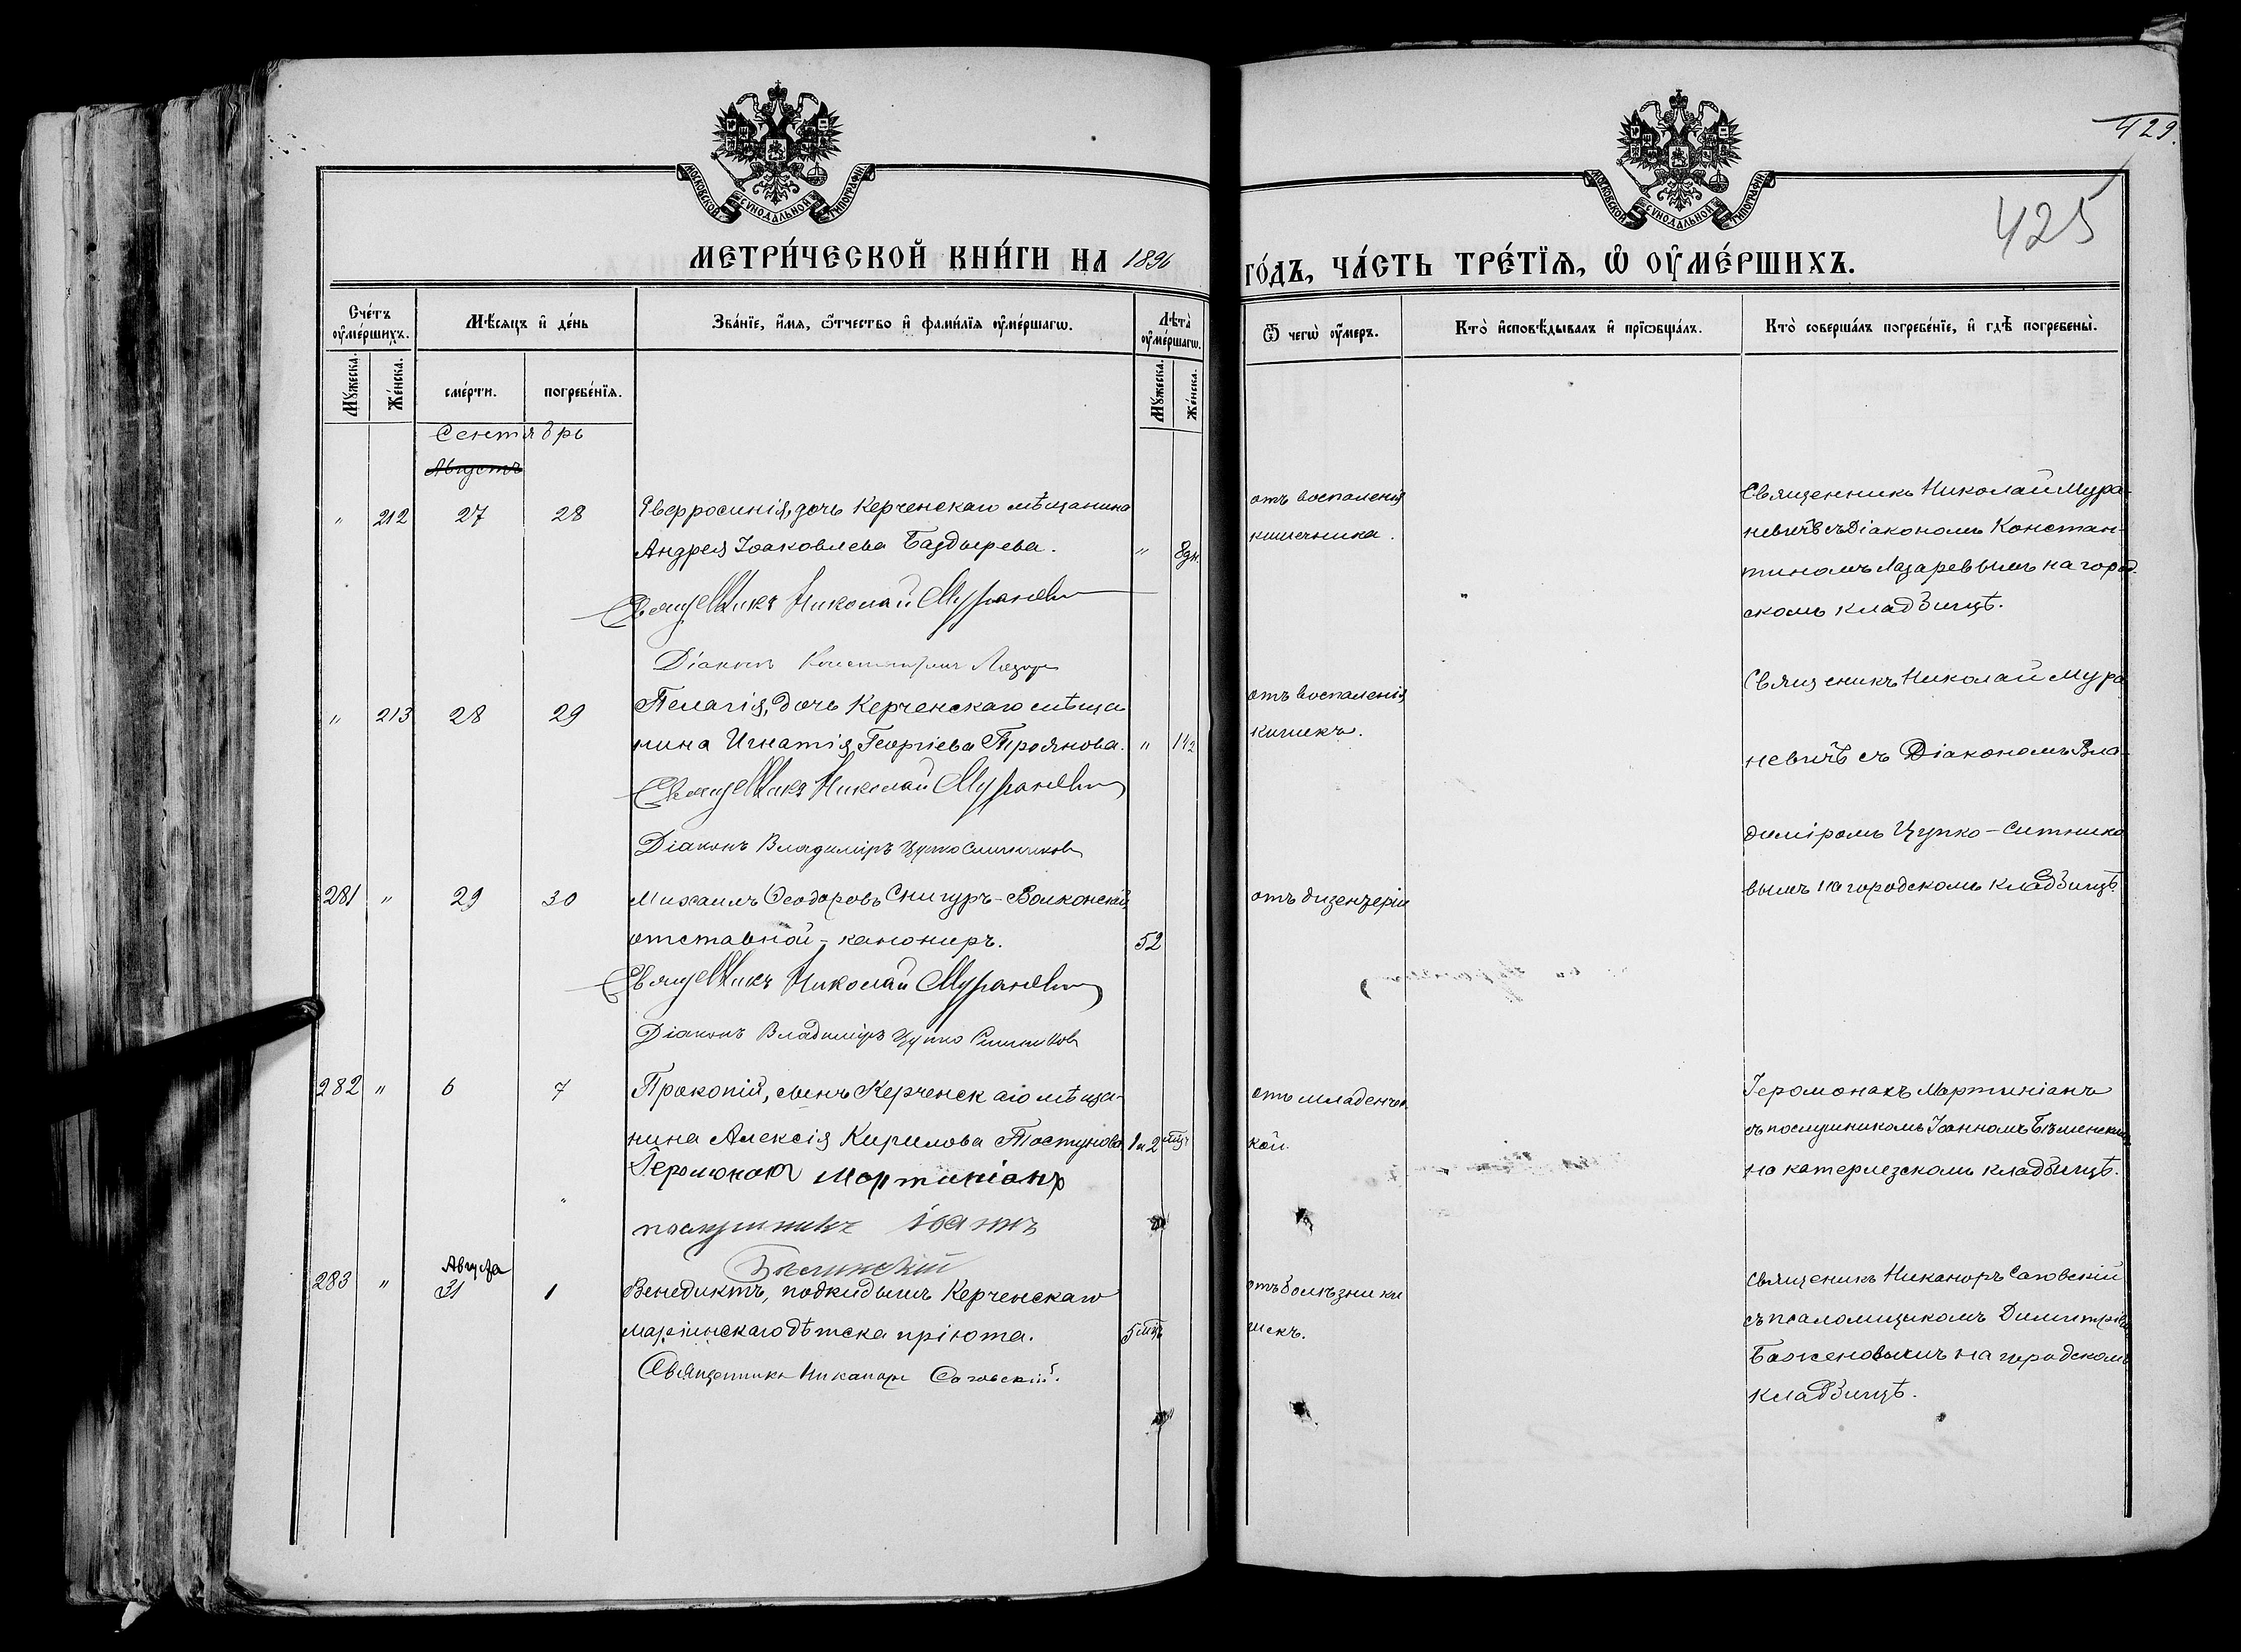 429.
425
МОСКОВСКОЙ СѴНОДАЛЬНОЙ ТИПОГРАФІИ
МОСКОВСКОЙ СѴНОДАЛЬНОЙ ТИПОГРАФІИ
МЕТРИ́ЧЕСКОЙ КНИ́ГИ НА 1896 ГО́ДЪ, ЧА́СТЬ ТРЕ́ТЇѦ, Ѡ҆ ОУ҆МЕ́РШИХЪ.
Сче́тъ оу҆ме́ршихъ.
Мѣ́сѧцъ и҆ де́нь
Зва́нїе, и҆́мѧ, ѻ҆́тчество и҆ фами́лїѧ оу҆ме́ршагѡ.
Лѣта̀ оу҆ме́ршагѡ.
Ѿ чегѡ̀ оу҆́меръ.
Кто̀ и҆сповѣ́дывалъ и҆ прїѡбща́лъ.
Кто̀ соверша́лъ погребе́нїе, и҆ гдѣ̀ погребены̀.
Мꙋ́жеска.
Же́нска.
сме́рти.
погребе́нїѧ.
Мꙋ́жеска.
Же́нска.
Сентябрь
Августъ
" 212 27 28
Евфросинія, дочь Керченскаго мѣщанина
Андрея Іоаковлева Баздырева. " 8 дн.
Священникъ Николай Мураневич
Діаконъ Константинъ Лазарев
отъ воспаленія
кишечника.
Священникъ Николай Мура-
невичъ съ Діакономъ Констан-
тиномъ Лазаревымъ на город-
скомъ кладбищѣ.
" 213 28 29
Пелагія, дочь Керченскаго мѣща-
нина Игнатія Георгіева Троянова. " 1 1/2
Священникъ Николай Мураневич
Діаконъ Владиміръ Цупко Ситников
отъ воспаленія
кишекъ.
Священикъ Николай Мура
невичъ съ Діакономъ Вла-
диміромъ Цупко-Ситнико
вымъ на городскомъ кладбищѣ.
281 " 29 30
Михаилъ Ѳеодоровъ Снигуръ-Волконскій,
отставной-канониръ. 52
Священникъ Николай Мураневич
Діаконъ Владиміръ Цупко Ситников
отъ дизентеріи
282 " 6 7
Прокопій, сынъ Керченскаго мѣща-
нина Алексія Кирилова Тостунова 1 и 2 мц
Іеромонахъ Мартиніанъ
послушникъ Іоаннъ
отъ младенчес
кой.
Іеромонахъ Мартиніанъ
съ послушникомъ Іоанномъ
на катерлезскомъ кладбищѣ.
283 " Августа 31 1
Венедиктъ, подкидышъ Керченскаго
маріинскаго дѣтска пріюта. 5 мц
Священникъ Никаноръ Саговскій.
отъ болѣзни ки
шекъ.
Священикъ Никаноръ Саговскій
съ псаломщикомъ Димитріемъ
Баженовымъ на городскомъ
кладбищѣ.